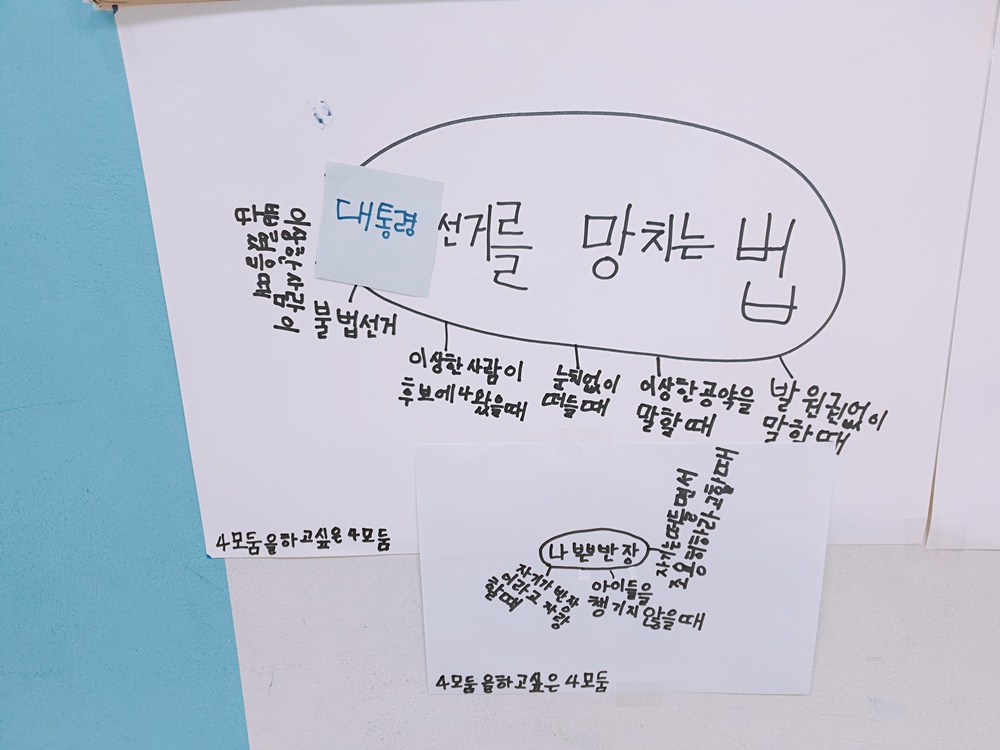 대통령 선거를 망치는 법
이상한 사람이
뽑혔을때
불법선거
이상한 사람이
후보에 나왔을때
눈치없이
떠들때
이상한 공약을
말할때
발원권없이
말할때
4모둠을하고싶은 4모둠
나쁜반장
자기는 떠들면서
조용히하라고할때
자기가 반장
이라고 자랑
할때
아이들을
챙기지 않을때
4모둠을하고싶은 4모둠